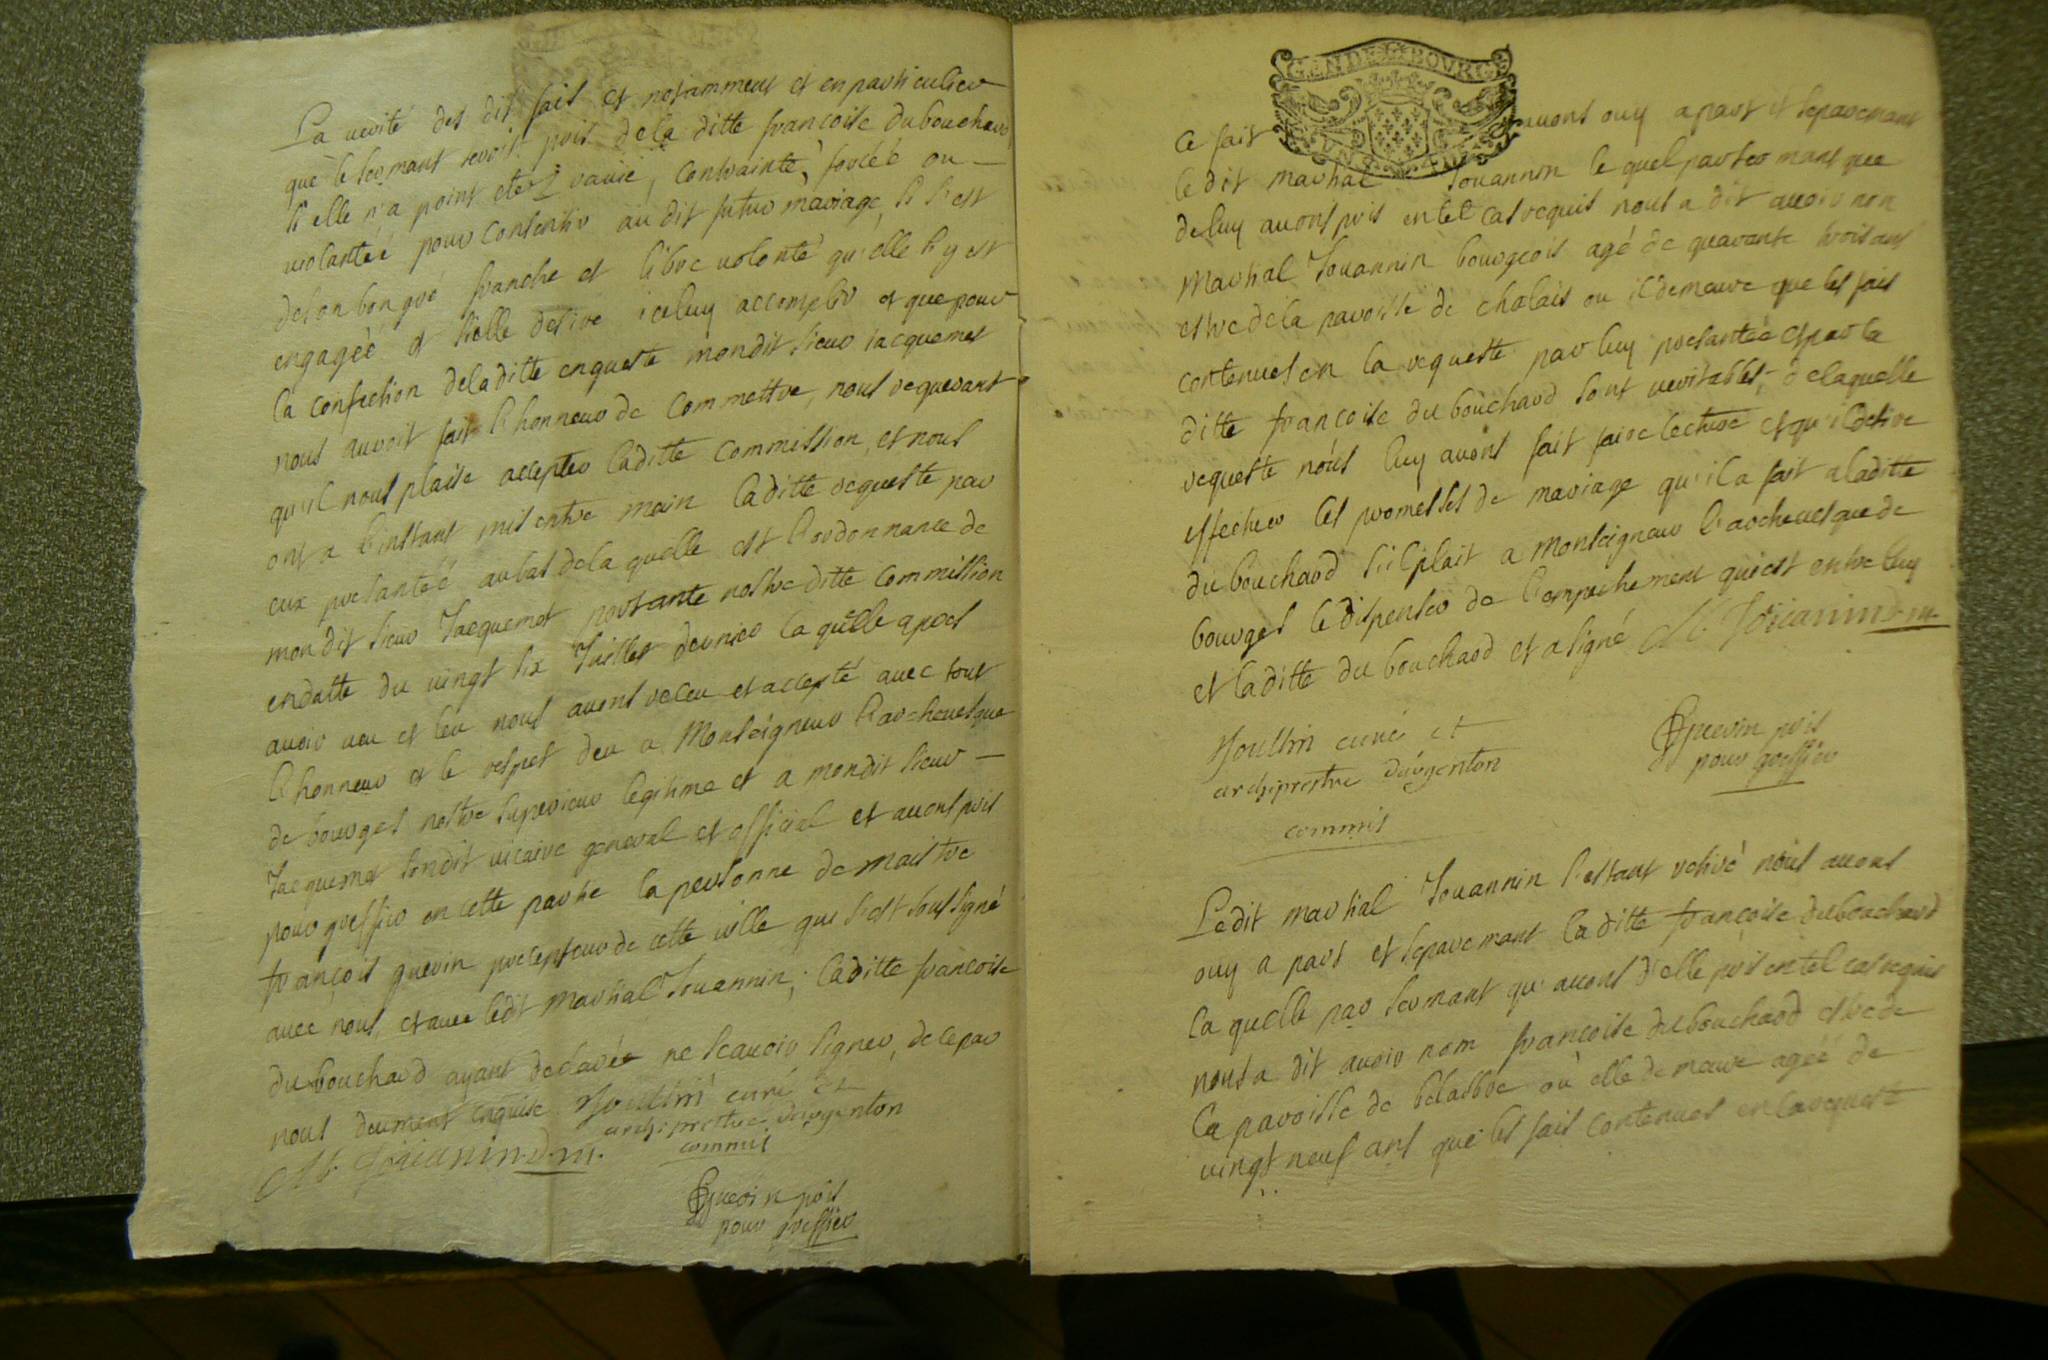 La verité des dit fait et notamment et en particulier
que le sermant servit pris de la ditte francoise dubouchard
si elle n'a point eté ravie, contrainte, forcée ou
violantée pour consentir au dit futur mariage, si s'est
de son bon gré franche et libre volonté qu'elle s'y est
engagée et si elle desire iceluy accomplir et que pour
la confection de la ditte enqueste mondit sieur Jacquemet
nous auroit fait l'honneur de commettre, nous requerant
qu'il nous plaise accepter laditte commission, et nous
ont a l'instant mis entre main laditte requeste par
eux presantée au bas de la quelle est l'ordonnance de
mon dit sieur Jacquemet portante nostre ditte commission
en datte du vingt six Juillet dernier la quelle apres
avoir veu et leu nous avons receu et accepté avec tout
l'honneur et le respet deu a Monseigneur l'archevesque
de bourges nostre superieur legitime et a mondit sieur
Jacquemet sondit vicaire general et official et avons pris
pour greffier en cette partie la personne de maistre
françois guerin precepteur de cette ville qui s'est soussigné
avec nous, et avec ledit martial Jouannin, laditte francoise
du bouchard ayant declarée ne scavoir signer, de ce par
nous deument enquise Joullin curé et
archiprestre d'argenton
commis
M. Joüanin d. m.
guerin pris
pour greffier
GEN DE BOVRG
Ce fait avons ouy a part et separemant
le dit martial Jouannin le quel par sermant que
de luy avons pris en tel cas requis nous a dit avoir nom
Martial Jouannin bourgeois agé de quarante trois ans
estre de la paroisse de chalais ou il demeure que les fais
contenues en la requeste par luy presantée et par la
ditte francoise du bouchard sont veritables, de laquelle
requeste nous luy avons fait faire lecture et qu'il desire
effectuer les promesses de mariage qu'il a fait a laditte
du bouchard s'il plait a Monseigneur l'archevesque de
bourges le dispenser de l'empechement qui est entre luy
et laditte du bouchard et a signé M. Joüanin d. m.
Joullin curé et
archiprestre d'argenton
commis
guerin pris
pour greffier
Ledit martial Jouannin s'estant retiré nous avons
ouy a part et separemant laditte françoise dubouchard
la quelle par sermant qu'avons d'elle pris en tel cas requis
nous a dit avoir nom francoise du bouchard estre de
la paroisse de belabre où elle demeure agée de
vingt neuf ans que les fais contenues en la requeste